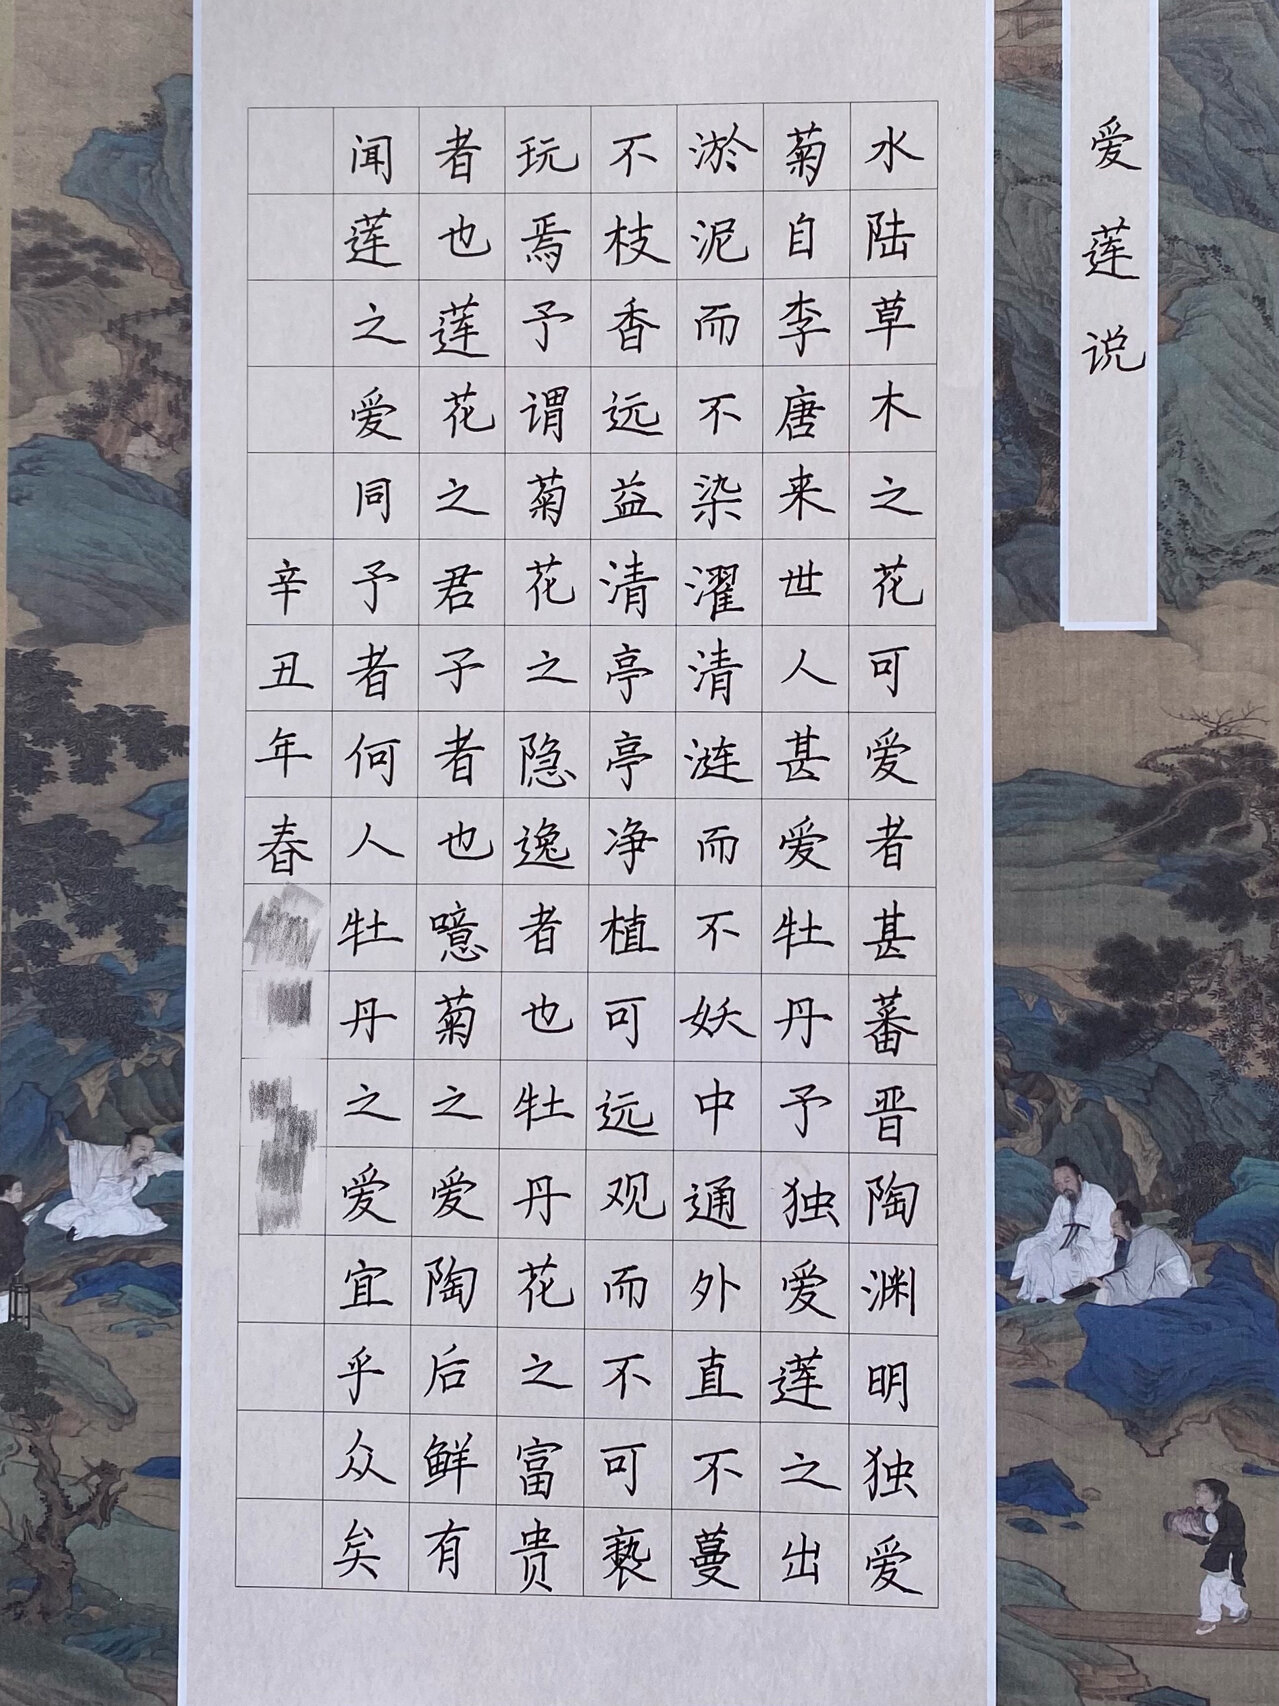 爱莲说
水陆草木之花可爱者甚蕃晋陶渊明独爱
菊自李唐来世人甚爱牡丹予独爱莲之出
淤泥而不染濯清涟而不妖中通外直不蔓
不枝香远益清亭亭净植可远观而不可亵
玩焉予谓菊花之隐逸者也牡丹花之富贵
者也莲花之君子者也噫菊之爱陶后鲜有
闻莲之爱同予者何人牡丹之爱宜乎众矣
辛丑年春